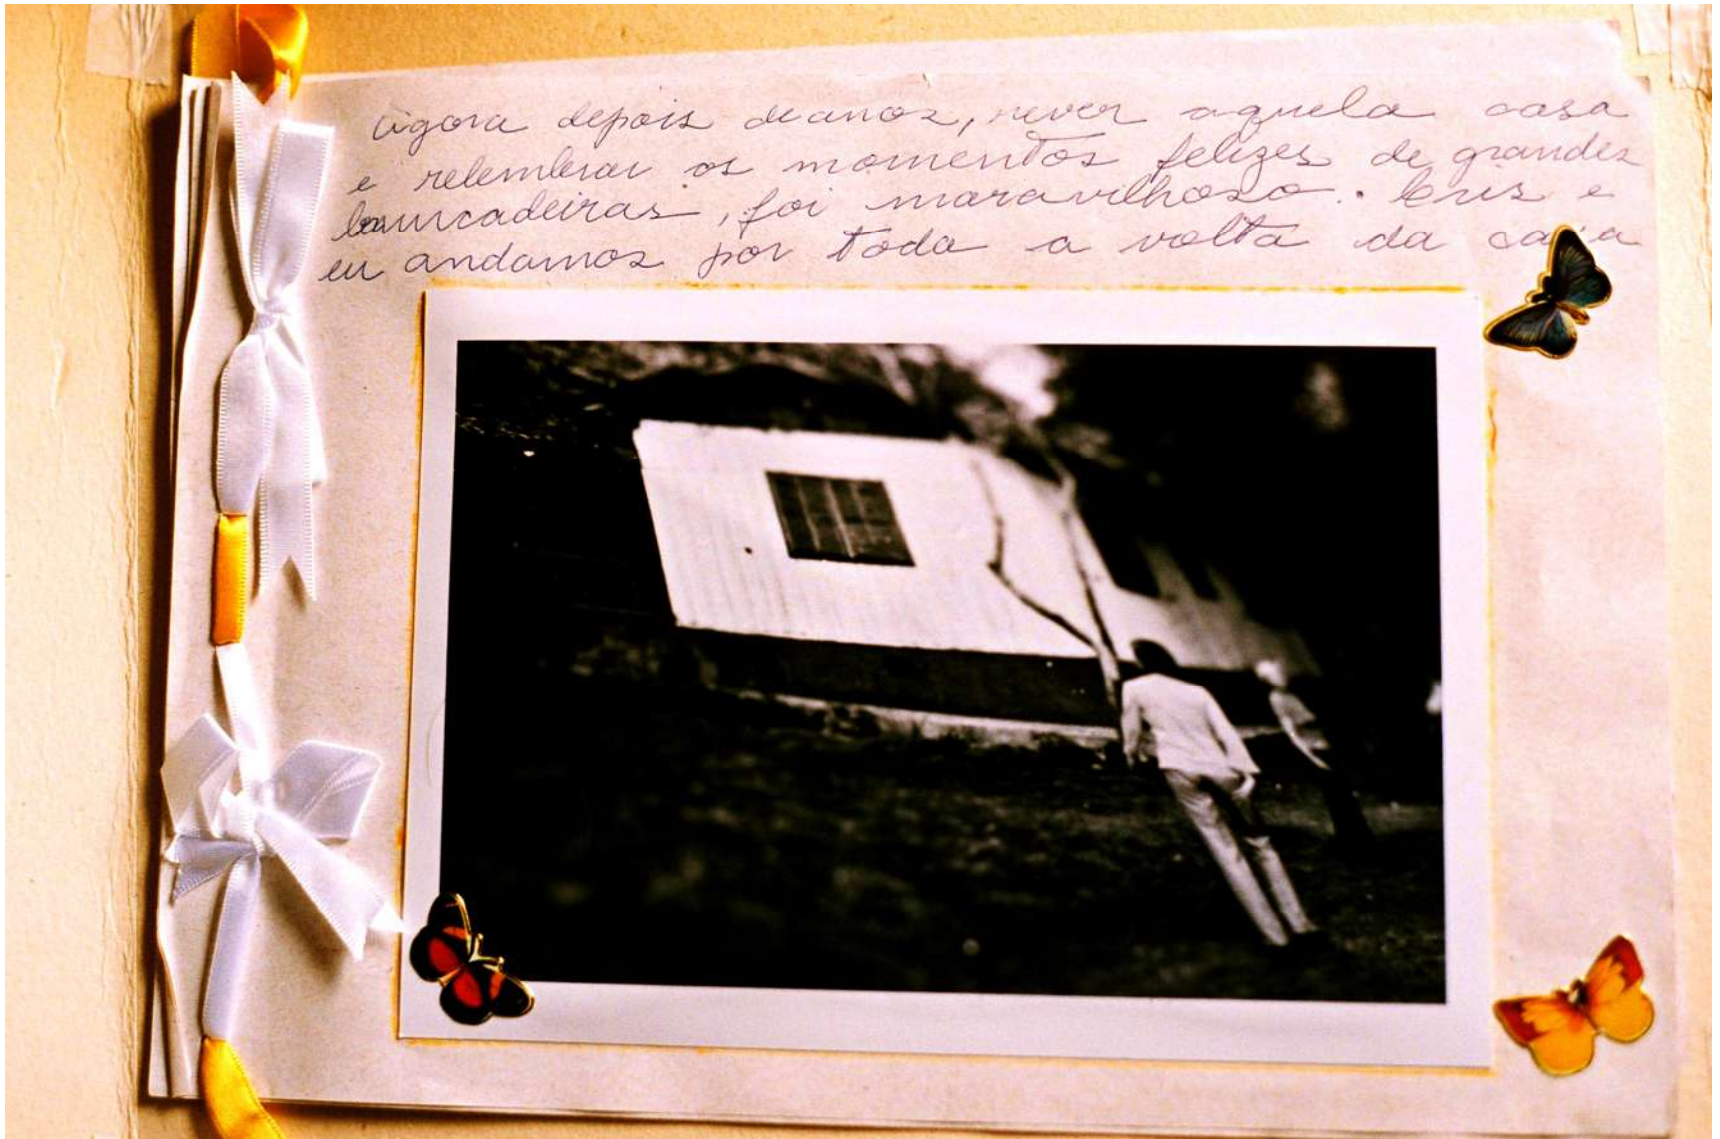 agora depois de anos, rever aquela casa
e relembrar os momentos felizes de grandes
brincadeiras, foi maravilhoso. Cris e
eu andamos por toda a volta da casa